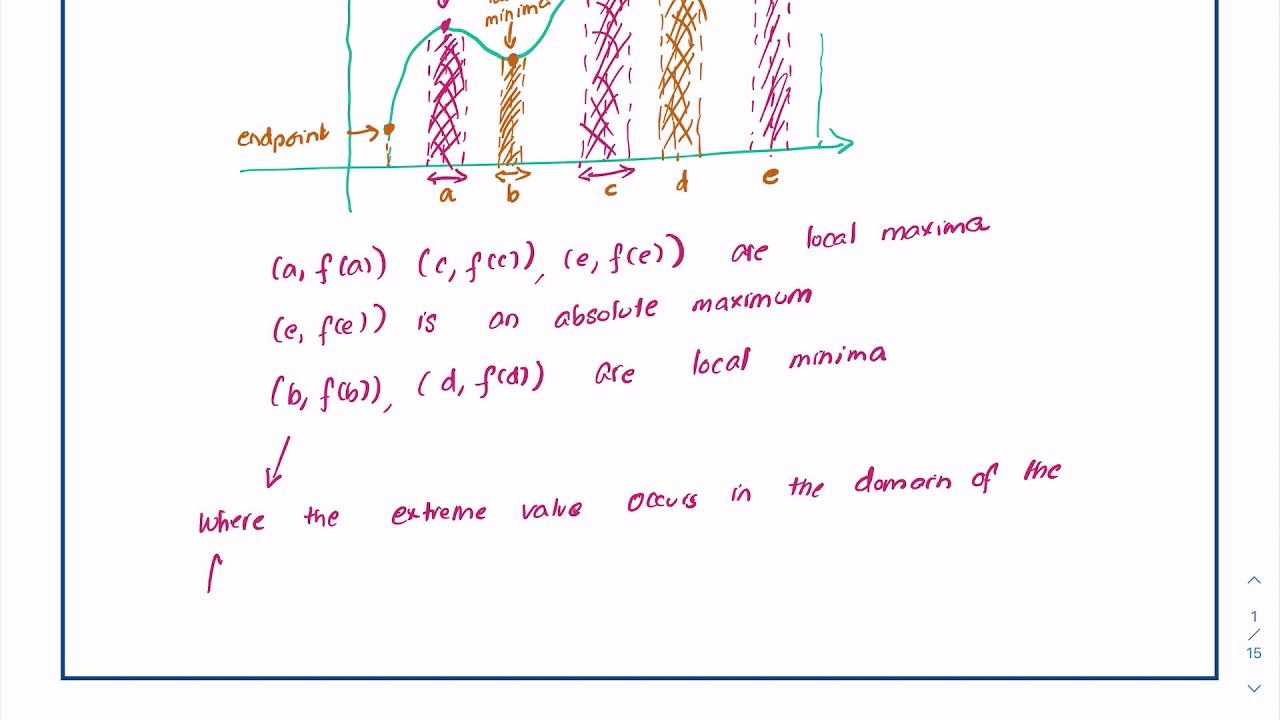 minima
endpoint
a b c d e
(a, f(a)) (c, f(c)), (e, f(e)) are local maxima
(e, f(e)) is an absolute maximum
(b, f(b)), (d, f(d)) are local minima
Where the extreme value occurs in the domain of the
1
/
15